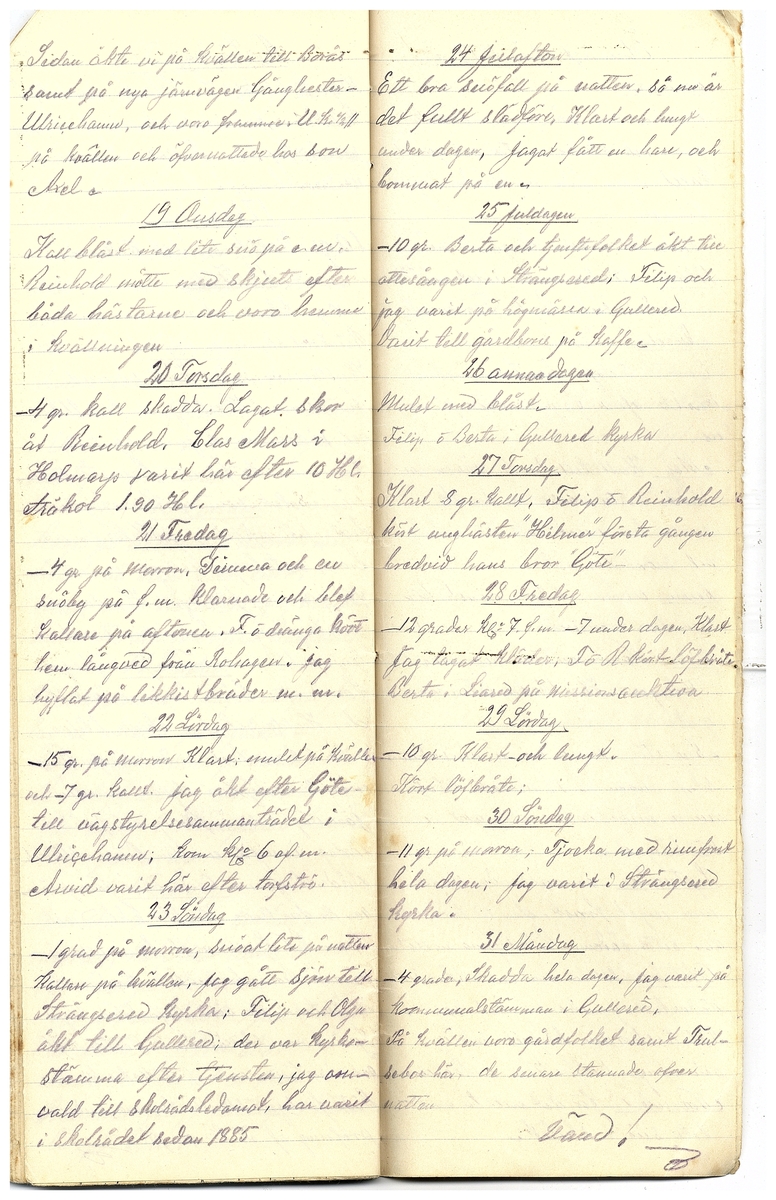 Sedan åkte vi på kvällen till Borås
samt på nya järnvägen Gånghester-
Ulricehamn, och voro framme. U. kl. 11
på kvällen och öfvernattade hos son
Axel.
19 Onsdag
Kall blåst med lite snö på e.m.
Reinhold mötte med skjuts efter
båda hästarne och voro hemma
i kvällningen
20 Torsdag
-4 gr. kall skadda. Lagat skor
åt Reinhold. Clas Mass i
Holmarp varit här efter 10 Hl.
träkol 1.90 Hl.
21 Fredag
-4 gr på morron, Dimma och en
snöby på f.m. Klarnade och blef
kallare på aftonen. F. o dränga kört
hem långved från Rohagen. jag
hyflat på likkistbräder m. m.
22 Lördag
-15 gr. på morron Klart; mulet på kvällen
och -7 gr. kallt. jag åkt efter Göte
till vägstyrelsesammanträdet i
Ulricehamn; kom kl. 6 af m.
Arvid varit här efter torfströ.
23 Söndag
-1 grad på morron, snöat lite på natten
Kallare på kvällen, jag gått sjön till
Strängsered kyrka; Filip och Olga
åkt till Gullered; der var kyrko-
stämma efter tjensten, jag om-
vald till skolrådsledamot, har varit
i skolrådet sedan 1885
24 Julafton
Ett bra snöfall på natten, så nu är
det fullt slädföre, Klart och lungt
under dagen, jagat fått en hare, och
bommat på en.
25 Juldagen
-10 gr. Berta och tjenstefolket åkt till
ottesången i Strängsered; Filip och
jag varit på högmässa i Gullered.
Varit till gårdbons på kaffe.
26 annandagen
Mulet med blåst.
Filip o Berta i Gullered kyrka
27 Torsdag
Klart 8 gr. kallt, Filip o Reinhold
kört unghästen "Hilmer" första gången
bredvid hans bror "Göte"
28 Fredag
-12 grader kl. 7 f.m. -7 under dagen, Klart
Jag lagat klöfver; F o R kört löfbråte.
Berta i Liared på missionsauktion
29 Lördag
-10 gr. Klart och lungt.
Kört löfbråte;
30 Söndag
-11 gr på morron; Tjocka med rimfrost
hela dagen; jag varit i Strängsered
kyrka.
31 Måndag
-4 grader, Skadda hela dagen, jag varit på
kommunalstämman i Gullered,
På kvällen voro gårdfolket samt Trul-
sebor här. de senare stannade öfver
natten
Vänd!